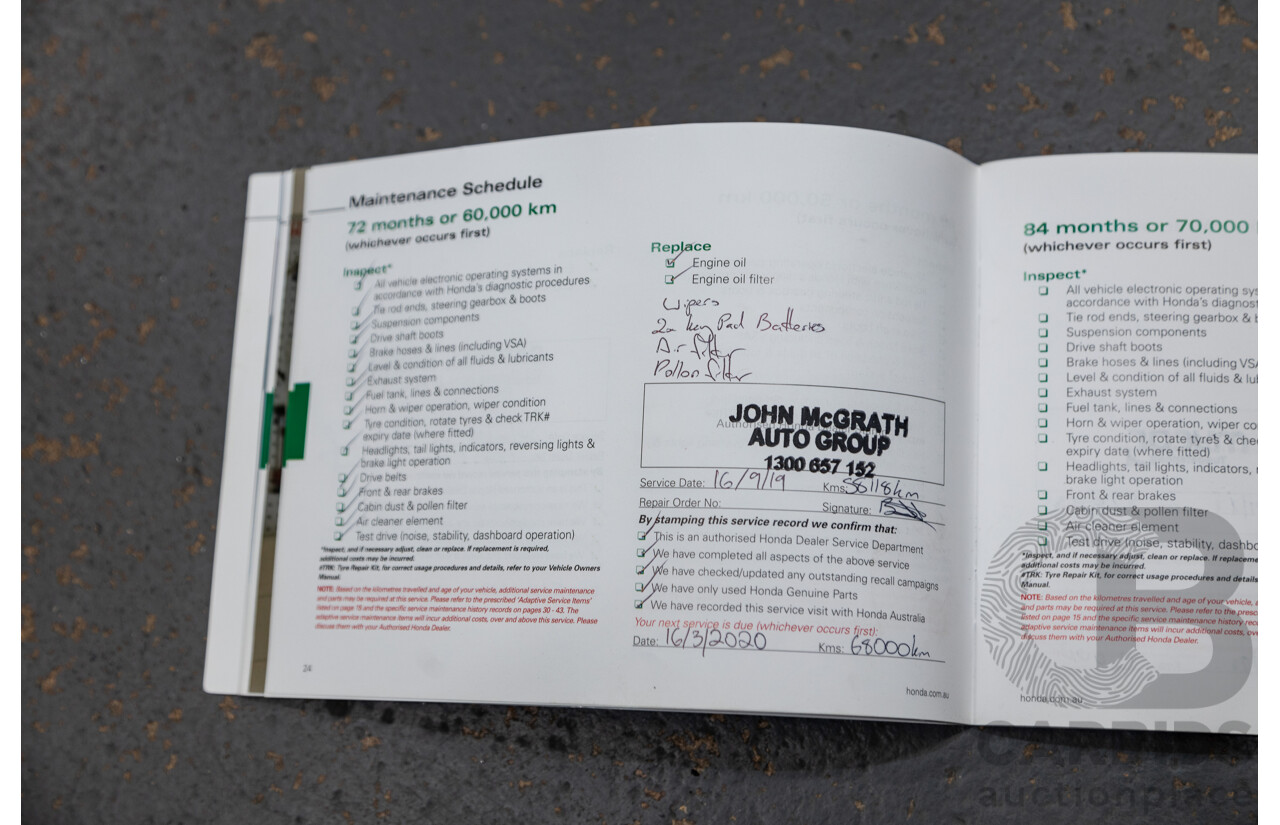 Maintenance Schedule
72 months or 60,000 km
(whichever occurs first)
Inspect*
All vehicle electronic operating systems in
accordance with Honda's diagnostic procedures
Tie rod ends, steering gearbox & boots
Suspension components
Drive shaft boots
Brake hoses & lines (including VSA)
Level & condition of all fluids & lubricants
Exhaust system
Fuel tank, lines & connections
Horn & wiper operation, wiper condition
Tyre condition, rotate tyres & check TRK#
expiry date (where fitted)
Headlights, tail lights, indicators, reversing lights &
brake light operation
Drive belts
Front & rear brakes
Cabin dust & pollen filter
Air cleaner element
Test drive (noise, stability, dashboard operation)
*Inspect, and if necessary adjust, clean or replace. If replacement is required,
additional costs may be incurred.
#TRK: Tyre Repair Kit, for correct usage procedures and details, refer to your Vehicle Owners
Manual.
NOTE: Based on the kilometres travelled and age of your vehicle, additional service maintenance
and parts may be required at this service. Please refer to the prescribed 'Adaptive Service Items'
listed on page 15 and the specific service maintenance history records on pages 30 - 43. The
adaptive service maintenance items will incur additional costs, over and above this service. Please
discuss them with your Authorised Honda Dealer.
24
Replace
Engine oil
Engine oil filter
Wipers
2x key Pad Batteries
Air filter
Pollon filter
JOHN McGRATH
AUTO GROUP
1300 657 152
Service Date: 16/9/19 Kms: 58118km
Repair Order No: Signature:
By stamping this service record we confirm that:
This is an authorised Honda Dealer Service Department
We have completed all aspects of the above service
We have checked/updated any outstanding recall campaigns
We have only used Honda Genuine Parts
We have recorded this service visit with Honda Australia
Your next service is due (whichever occurs first):
Date: 16/3/2020 Kms: 68000km
honda.com.au
84 months or 70,000
(whichever occurs first)
Inspect*
All vehicle electronic operating sys
accordance with Honda's diagnost
Tie rod ends, steering gearbox & b
Suspension components
Drive shaft boots
Brake hoses & lines (including VSA
Level & condition of all fluids & lu
Exhaust system
Fuel tank, lines & connections
Horn & wiper operation, wiper co
Tyre condition, rotate tyres & che
expiry date (where fitted)
Headlights, tail lights, indicators,
brake light operation
Front & rear brakes
Cabin dust & pollen filter
Air cleaner element
Test drive (noise, stability, dashbo
*Inspect, and if necessary adjust, clean or replace. If replaceme
additional costs may be incurred.
#TRK: Tyre Repair Kit, for correct usage procedures and details
Manual.
NOTE: Based on the kilometres travelled and age of your vehicle, a
and parts may be required at this service. Please refer to the presc
listed on page 15 and the specific service maintenance history rec
adaptive service maintenance items will incur additional costs, ove
discuss them with your Authorised Honda Dealer.
honda.com.au
CARBIDS
auctionplace